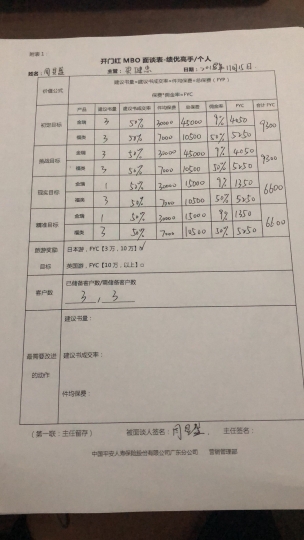 附着1：
开门红 MBO 面谈表-绩优高手/个人
姓名： 主管： 日期：2018年11月15日
价值公式 建议书量×建议书成交率×件均保费=总保费（FYP）
保费*佣金率=FYC
产品 建议书量 建议书成交率 件均保费 总保费 佣金率 FYC 合计 FYC
3 50% 30000 45000 9% 4050 9300
3 50% 7000 10500 50% 5250
挑战目标 3 50% 30000 45000 9% 4050 9300
3 50% 7000 10500 50% 5250
1 50% 30000 15000 9% 1350 6600
3 50% 7000 10500 50% 5250
1 50% 30000 15000 9% 1350 6600
3 50% 7000 10500 50% 5250
旅游奖励 日本游，FYC【3万，10万】
目标 英国游，FYC【10万，以上】□
客户数 已储备客户数/需储备客户数
3，3
建议书量：
最需要改进 建议书成交率：
的动作
件均保费：
（第一联：主任留存） 被面谈人签名： 主任签名：
中国平安人寿保险股份有限公司广东分公司 营销管理部